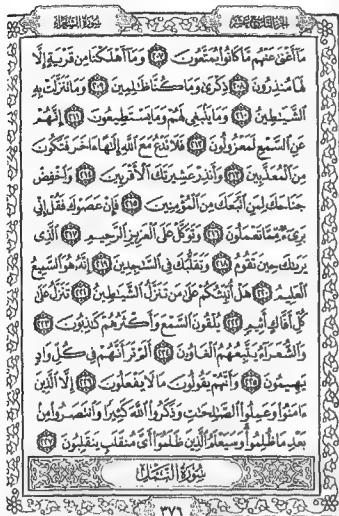 الجزء التاسع عشر سورة الشعراء
مَآ أَغْنَىٰ عَنْهُم مَّا كَانُوا۟ يُمَتَّعُونَ ٢٠٧ وَمَآ أَهْلَكْنَا مِن قَرْيَةٍ إِلَّا
لَهَا مُنذِرُونَ ٢٠٨ ذِكْرَىٰ وَمَا كُنَّا ظَٰلِمِينَ ٢٠٩ وَمَا تَنَزَّلَتْ بِهِ
ٱلشَّيَٰطِينُ ٢١٠ وَمَا يَنۢبَغِى لَهُمْ وَمَا يَسْتَطِيعُونَ ٢١١ إِنَّهُمْ
عَنِ ٱلسَّمْعِ لَمَعْزُولُونَ ٢١٢ فَلَا تَدْعُ مَعَ ٱللَّهِ إِلَٰهًا ءَاخَرَ فَتَكُونَ
مِنَ ٱلْمُعَذَّبِينَ ٢١٣ وَأَنذِرْ عَشِيرَتَكَ ٱلْأَقْرَبِينَ ٢١٤ وَٱخْفِضْ
جَنَاحَكَ لِمَنِ ٱتَّبَعَكَ مِنَ ٱلْمُؤْمِنِينَ ٢١٥ فَإِنْ عَصَوْكَ فَقُلْ إِنِّى
بَرِىٓءٌ مِّمَّا تَعْمَلُونَ ٢١٦ وَتَوَكَّلْ عَلَى ٱلْعَزِيزِ ٱلرَّحِيمِ ٢١٧ ٱلَّذِى
يَرَىٰكَ حِينَ تَقُومُ ٢١٨ وَتَقَلُّبَكَ فِى ٱلسَّٰجِدِينَ ٢١٩ إِنَّهُۥ هُوَ ٱلسَّمِيعُ
ٱلْعَلِيمُ ٢٢٠ هَلْ أُنَبِّئُكُمْ عَلَىٰ مَن تَنَزَّلُ ٱلشَّيَٰطِينُ ٢٢١ تَنَزَّلُ عَلَىٰ
كُلِّ أَفَّاكٍ أَثِيمٍ ٢٢٢ يُلْقُونَ ٱلسَّمْعَ وَأَكْثَرُهُمْ كَٰذِبُونَ ٢٢٣
وَٱلشُّعَرَآءُ يَتَّبِعُهُمُ ٱلْغَاوُۥنَ ٢٢٤ أَلَمْ تَرَ أَنَّهُمْ فِى كُلِّ وَادٍ
يَهِيمُونَ ٢٢٥ وَأَنَّهُمْ يَقُولُونَ مَا لَا يَفْعَلُونَ ٢٢٦ إِلَّا ٱلَّذِينَ
ءَامَنُوا۟ وَعَمِلُوا۟ ٱلصَّٰلِحَٰتِ وَذَكَرُوا۟ ٱللَّهَ كَثِيرًا وَٱنتَصَرُوا۟ مِنۢ
بَعْدِ مَا ظُلِمُوا۟ وَسَيَعْلَمُ ٱلَّذِينَ ظَلَمُوٓا۟ أَىَّ مُنقَلَبٍ يَنقَلِبُونَ ٢٢٧
سورة النمل
٣٧٦